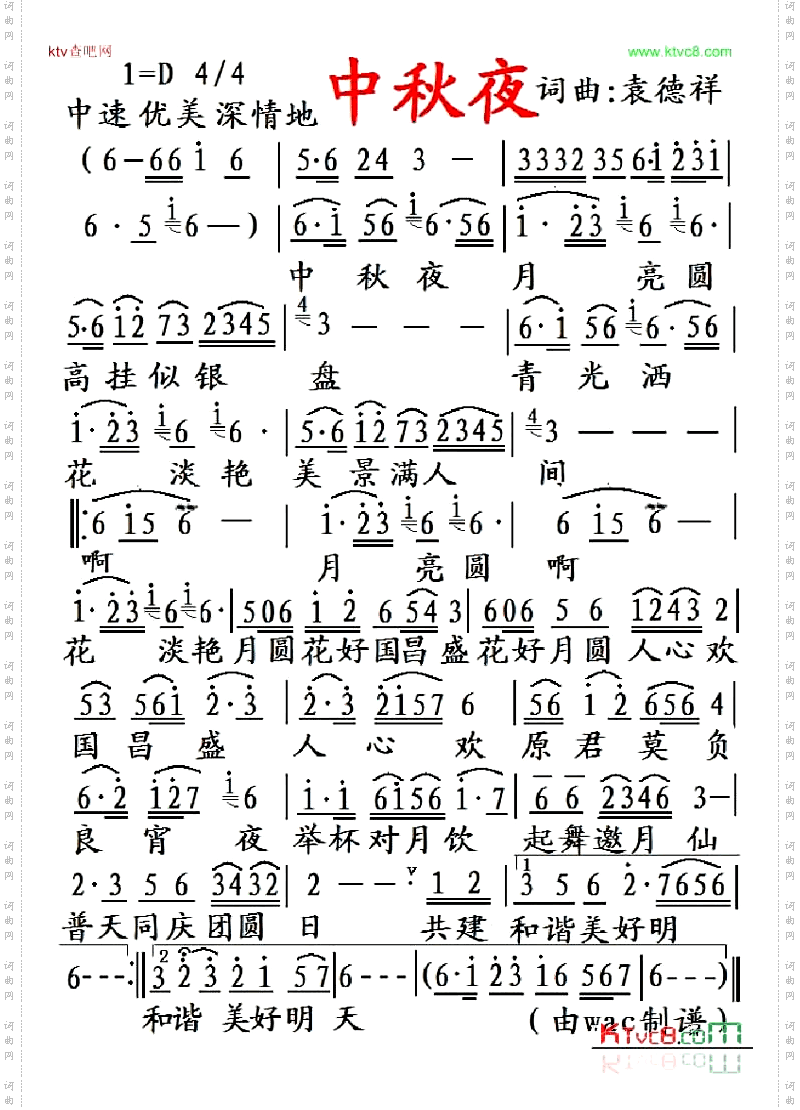 ktv查吧网
www.ktvc8.com
1=D 4/4
中秋夜
词曲:袁德祥
中速 优美 深情地
(6-66 i 6 | 5·6 24 3 - | 3332 35 6·i 23i |
6 · 5 6 -) | 6·i 56 6·56 | i· 23 6 6· |
中 秋 夜 月 亮 圆
5·6 i2 73 2345 | 3 - - - | 6·i 56 6·56 |
高 挂 似 银 盘 青 光 洒
i·23 6 6· | 5·6 i2 73 2345 | 3 - - - |
花 淡 艳 美 景 满 人 间
‖: 6 i5 6 - | i·23 6 6· | 6 i5 6 - |
啊 月 亮 圆 啊
i·23 6 6· | 506 i 2 6 54 3 | 606 5 6 1243 2 |
花 淡艳月圆花好国昌盛花好月圆 人心欢
53 56i 2·3 | 2·3 2157 6 | 56 i 2 656 4 |
国 昌 盛 人 心 欢 原 君 莫 负
6·2 i27 6 | i·i 6i56 i·7 | 6 6 2346 3- |
良 宵 夜 举杯对月饮 起舞邀月 仙
2·3 5 6 3432 | 2 - - v 1 2 | 1 3 5 6 2·7656 |
普天同庆团圆 日 共建 和谐美好明
6--- :‖ 2 3 2·3 2 i 57 | 6--- | (6·i 23 i6 567 | 6---) ‖
和谐 美好明 天
(由wac制谱)
KTvc8.com